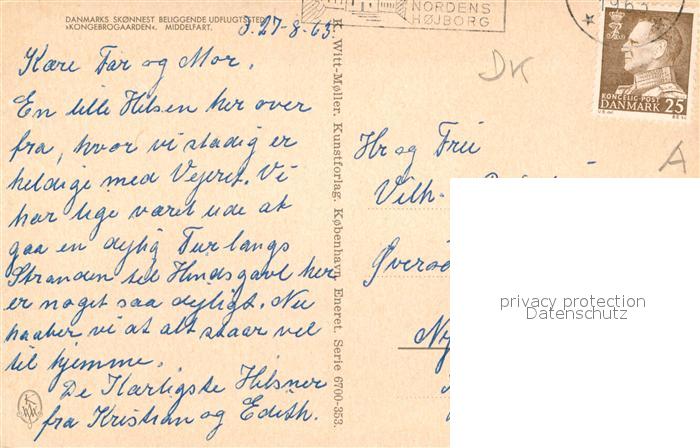 DANMARKS SKØNNEST BELIGGENDE UDFLUGTSSTED
»KONGEBROGAARDEN«. MIDDELFART.
NORDENS
HØJBORG
1963
27-8-63.
Kære Far og Mor.
En lille Hilsen her over
fra, hvor vi stadig er
heldige med Vejret. Vi
har lige været ude at
gaa en dejlig Tur langs
Stranden til Hindsgavl her
er noget saa dejligt. Nu
haaber vi at alt staar vel
til hjemme.
De Kærligste Hilsner
fra Kristian og Edith.
K. Witt-Møller. Kunstforlag. København. Eneret. Serie 6700-353.
DK
KONGELIG POST
DANMARK 25
A
Hr og Fru
Vilh.
privacy protection
Datenschutz